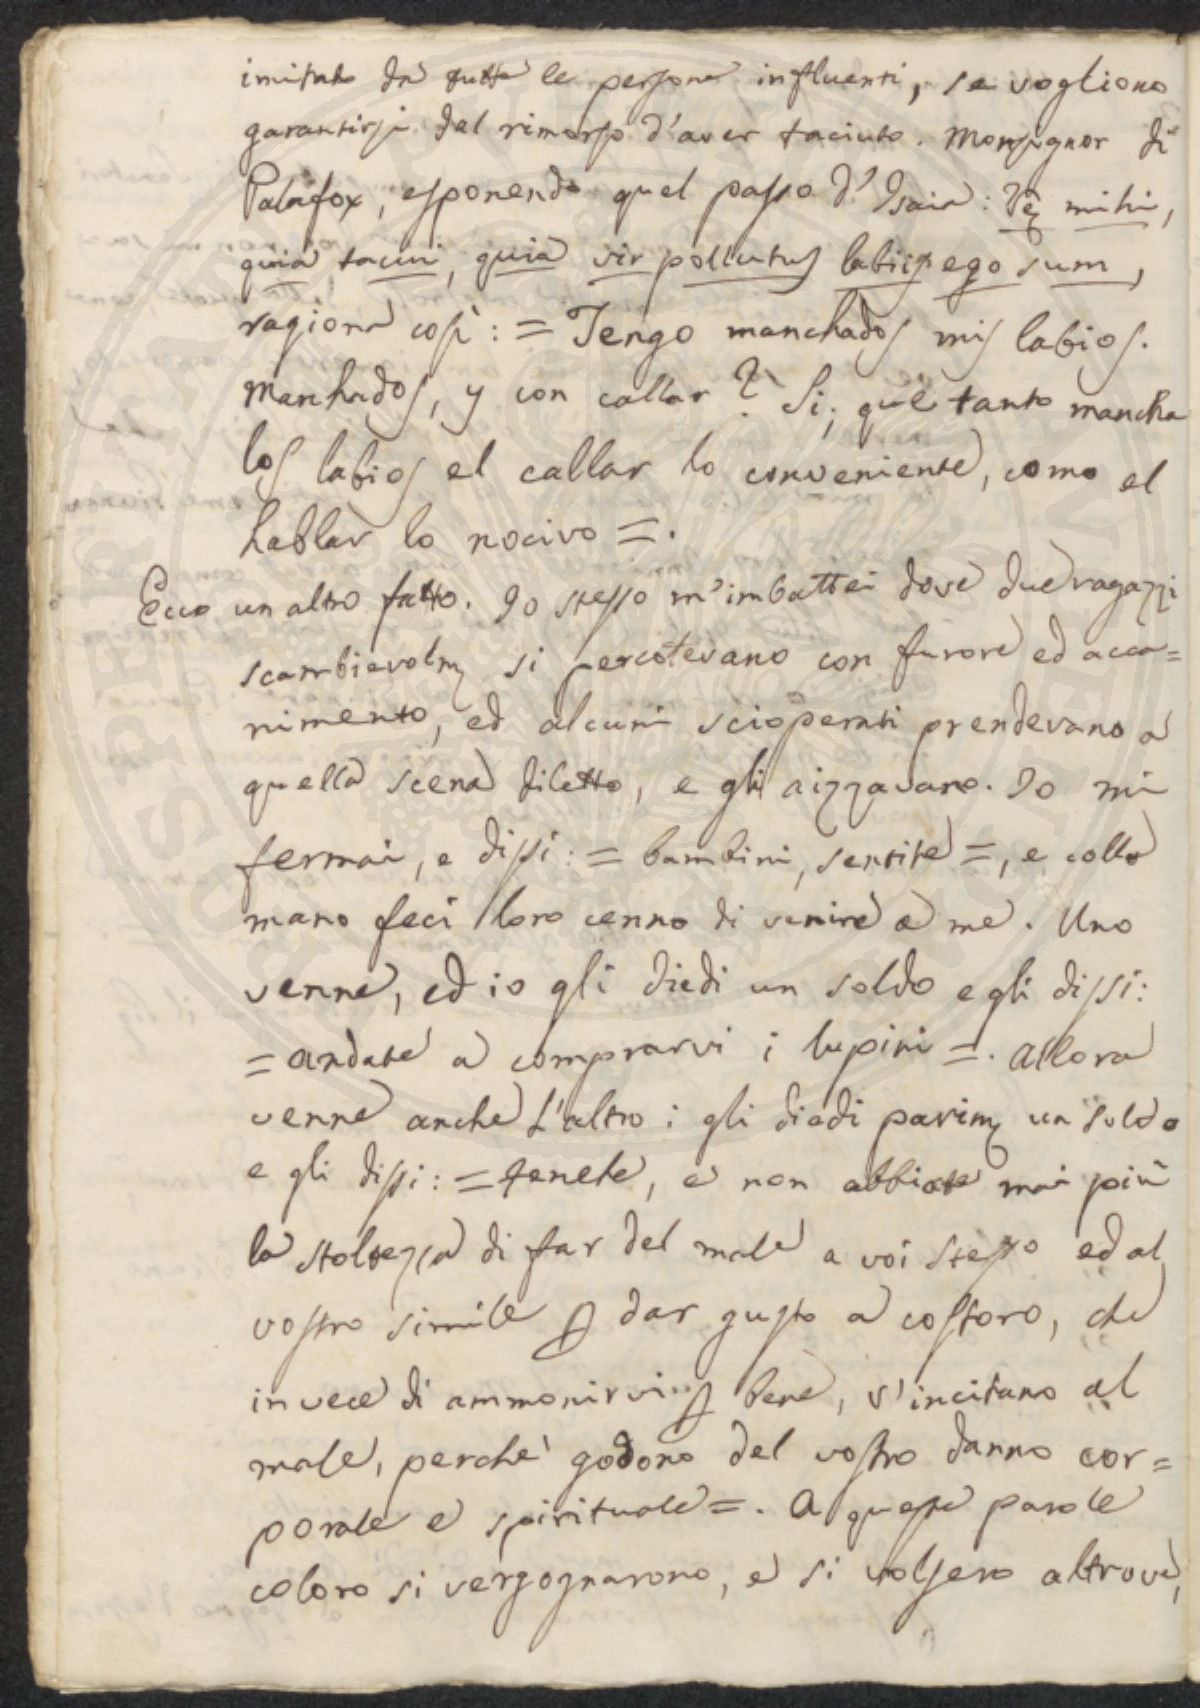 imitato da tutte le persone influenti, se vogliono
garantirsi del rimorso d'aver taciuto. Monsignor di
Palafox, esponendo quel passo d'Isaia: Vę mihi,
quia tacui, quia vir pollutus labiis ego sum,
ragiona così: = Tengo manchados mis labios.
Manchados, y con callar? Si; que tanto mancha
los labios el callar lo conveniente, como el
hablar lo nocivo =.
Ecco un altro fatto. Io stesso m'imbattei dove due ragazzi
scambievolm. si percotevano con furore ed acca=
nimento, ed alcuni scioperati prendevano a
quella scena diletto, e gli aizzavano. Io mi
fermai, e dissi: = bambini, sentite =, e colla
mano feci loro cenno di venire a me. Uno
venne, ed io gli diedi un soldo e gli dissi:
= andate a comprarvi i lupini =. Allora
venne anche l'altro: gli diedi parim. un soldo
e gli dissi: = tenete, e non abbiate mai più
la stoltezza di far del male a voi stesso ed al
vostro simile p dar gusto a costoro, che
invece di ammonirvi p bene, v'incitano al
male, perchè godono del vostro danno cor=
porale e spirituale =. A queste parole
coloro si vergognarono, e si volsero altrove,